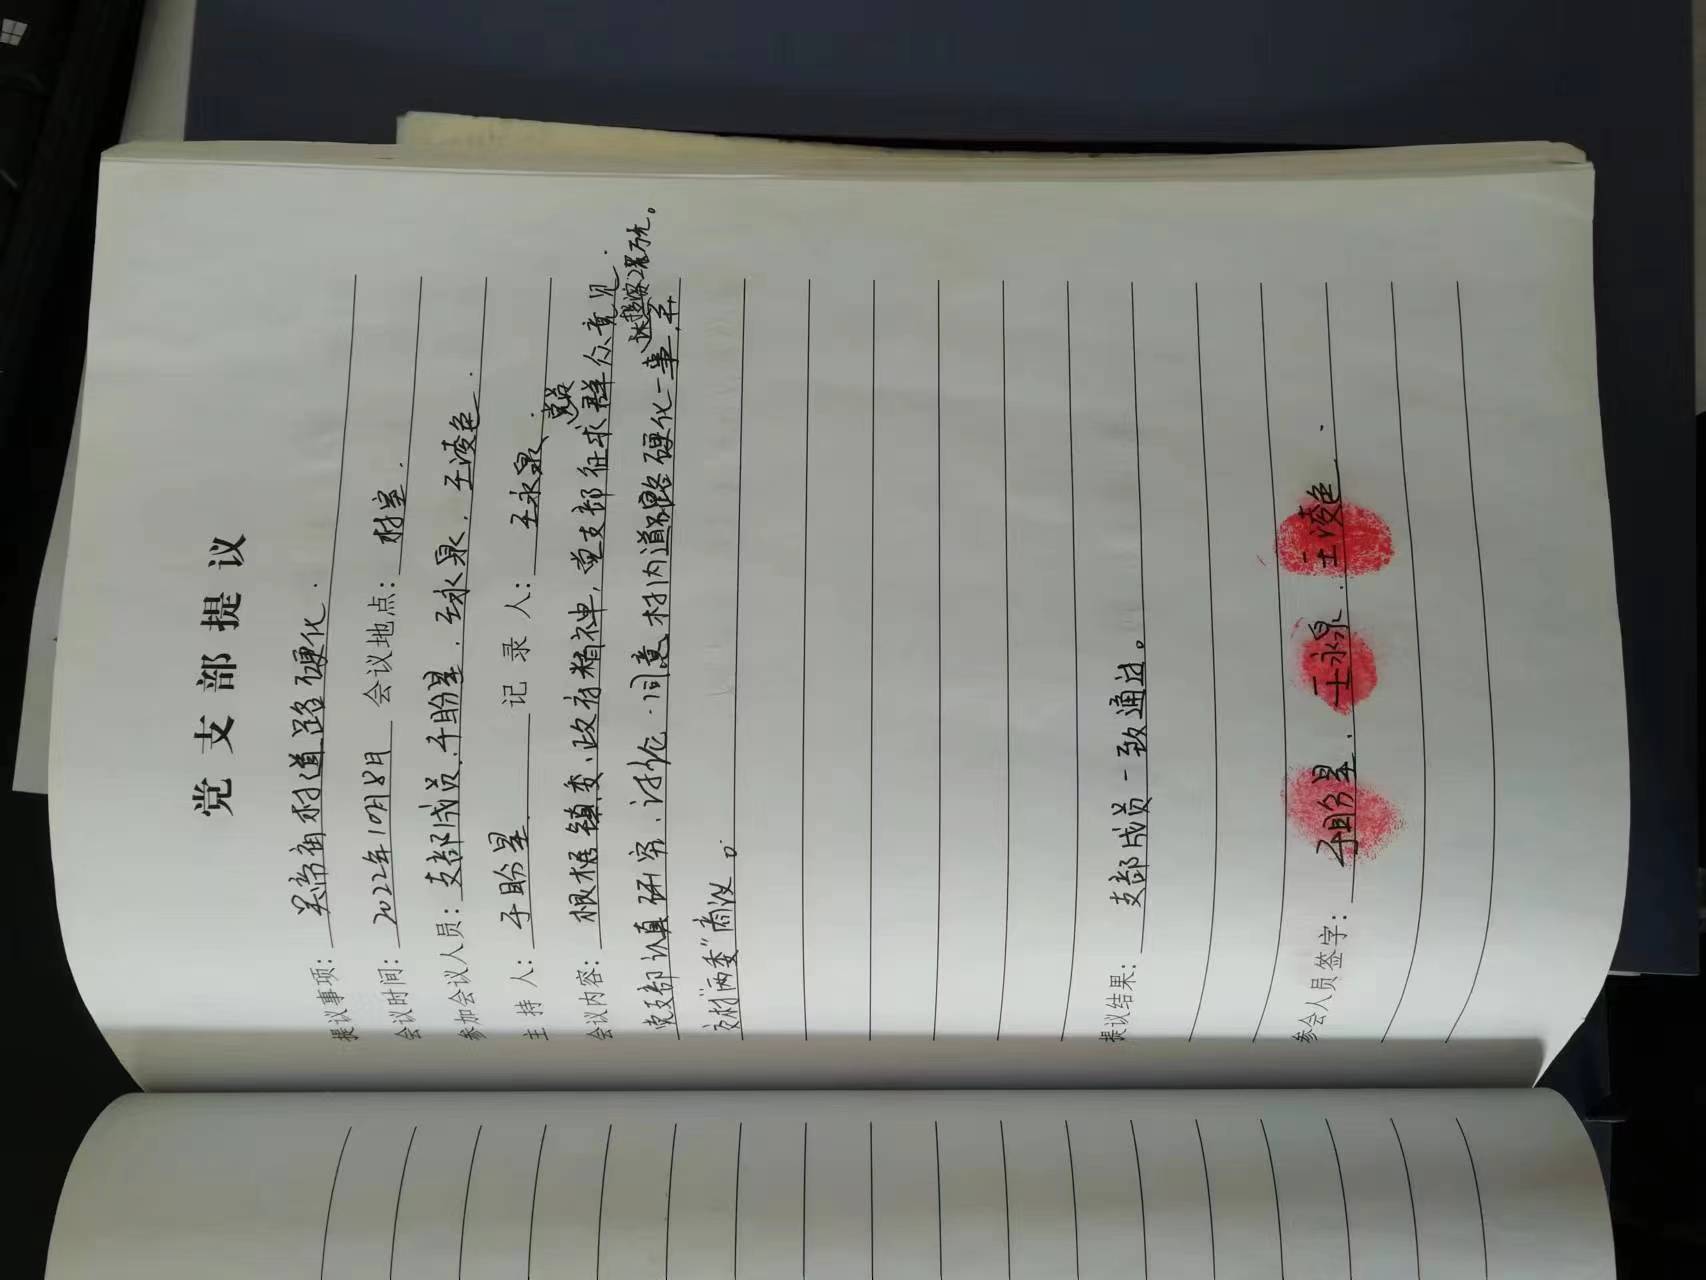 党支部提议
提议事项：关帝街村道路硬化.
会议时间：2022年10月8日 会议地点：村室.
参加会议人员：支部成员.于盼星.王永泉.王凌色.
主持人：于盼星. 记录人：王永泉.
党员
会议内容：根据镇委、政府精神，党支部征求群众意见.
党支部认真研究、讨论.同意村内道路硬化一事,并
交村“两委”商议。
提议结果：支部成员一致通过。
参会人员签字：于盼星. 王永泉. 王凌色.